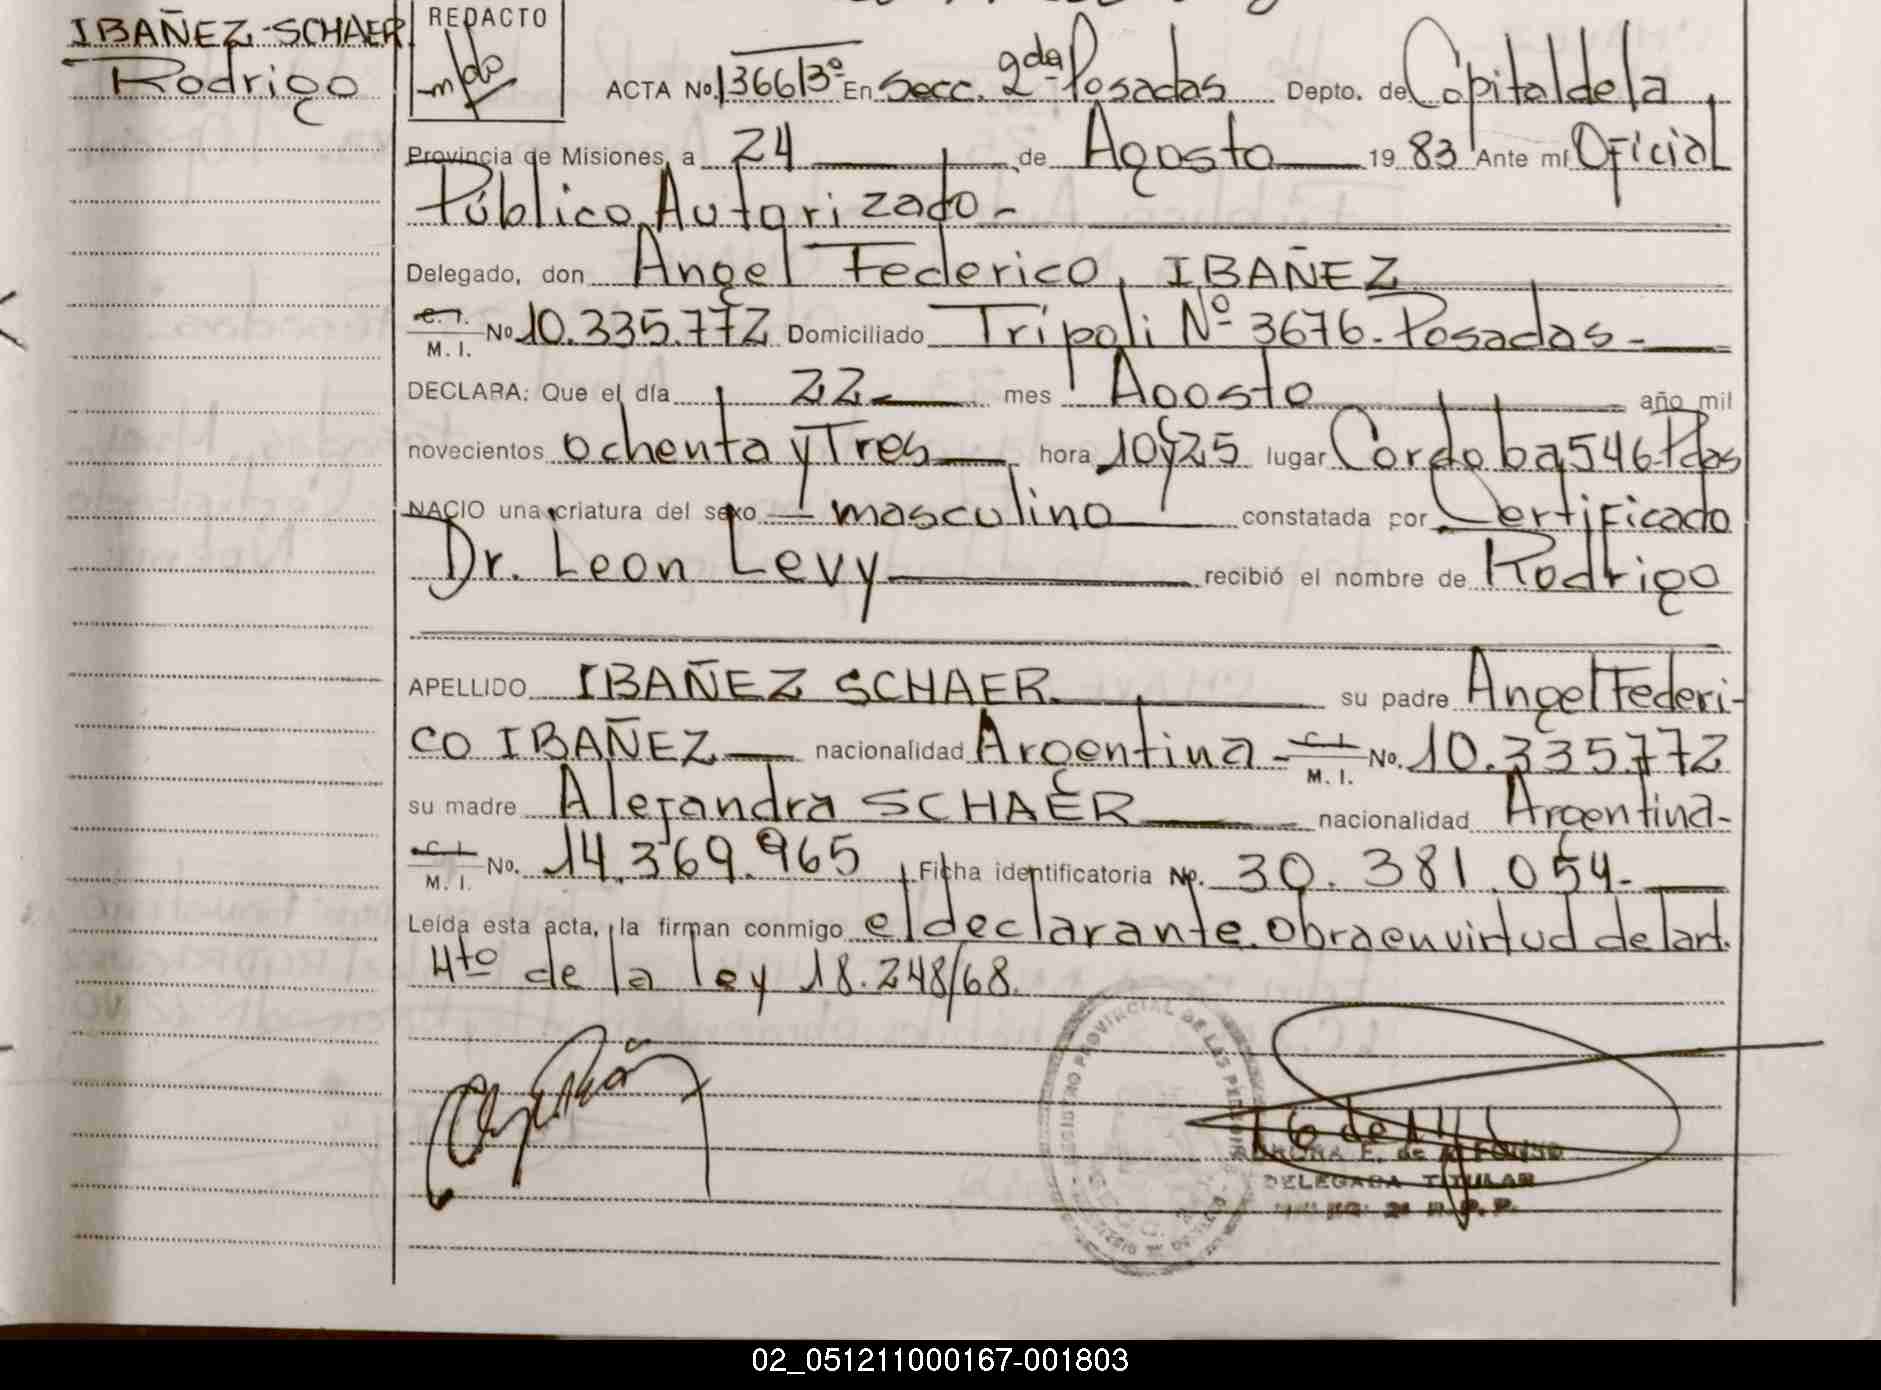 IBAÑEZ-SCHAER
Rodrigo
REDACTO
ACTA Nº. 1366 / 3º En Secc. 2da Posadas Depto. de Capital de la
Provincia de Misiones, a 24 de Agosto 19 83 Ante mí Oficial
Público Autorizado-
Delegado, don Angel Federico, IBAÑEZ
C.I. M. I. Nº 10.335.772 Domiciliado Trípoli Nº 3676- Posadas-
DECLARA: Que el día 22 mes Agosto año mil
novecientos ochenta y Tres hora 10y25 lugar Cordoba 546-Pdas
NACIO una criatura del sexo masculino constatada por Certificado
Dr. Leon Levy recibió el nombre de Rodrigo
APELLIDO IBAÑEZ SCHAER su padre Angel Federi-
co IBAÑEZ nacionalidad Argentina - C.I. M. I. Nº. 10.335.772
su madre Alejandra SCHAER nacionalidad Argentina-
C.I. M. I. Nº. 14.369.965 Ficha identificatoria Nº. 30.381.054-
Leída esta acta, la firman conmigo el declarante. Obra en virtud del art.
4to de la ley 18.248/68.
REGISTRO PROVINCIAL DE LAS PERSONAS
DELEGADA TITULAR
02_051211000167-001803